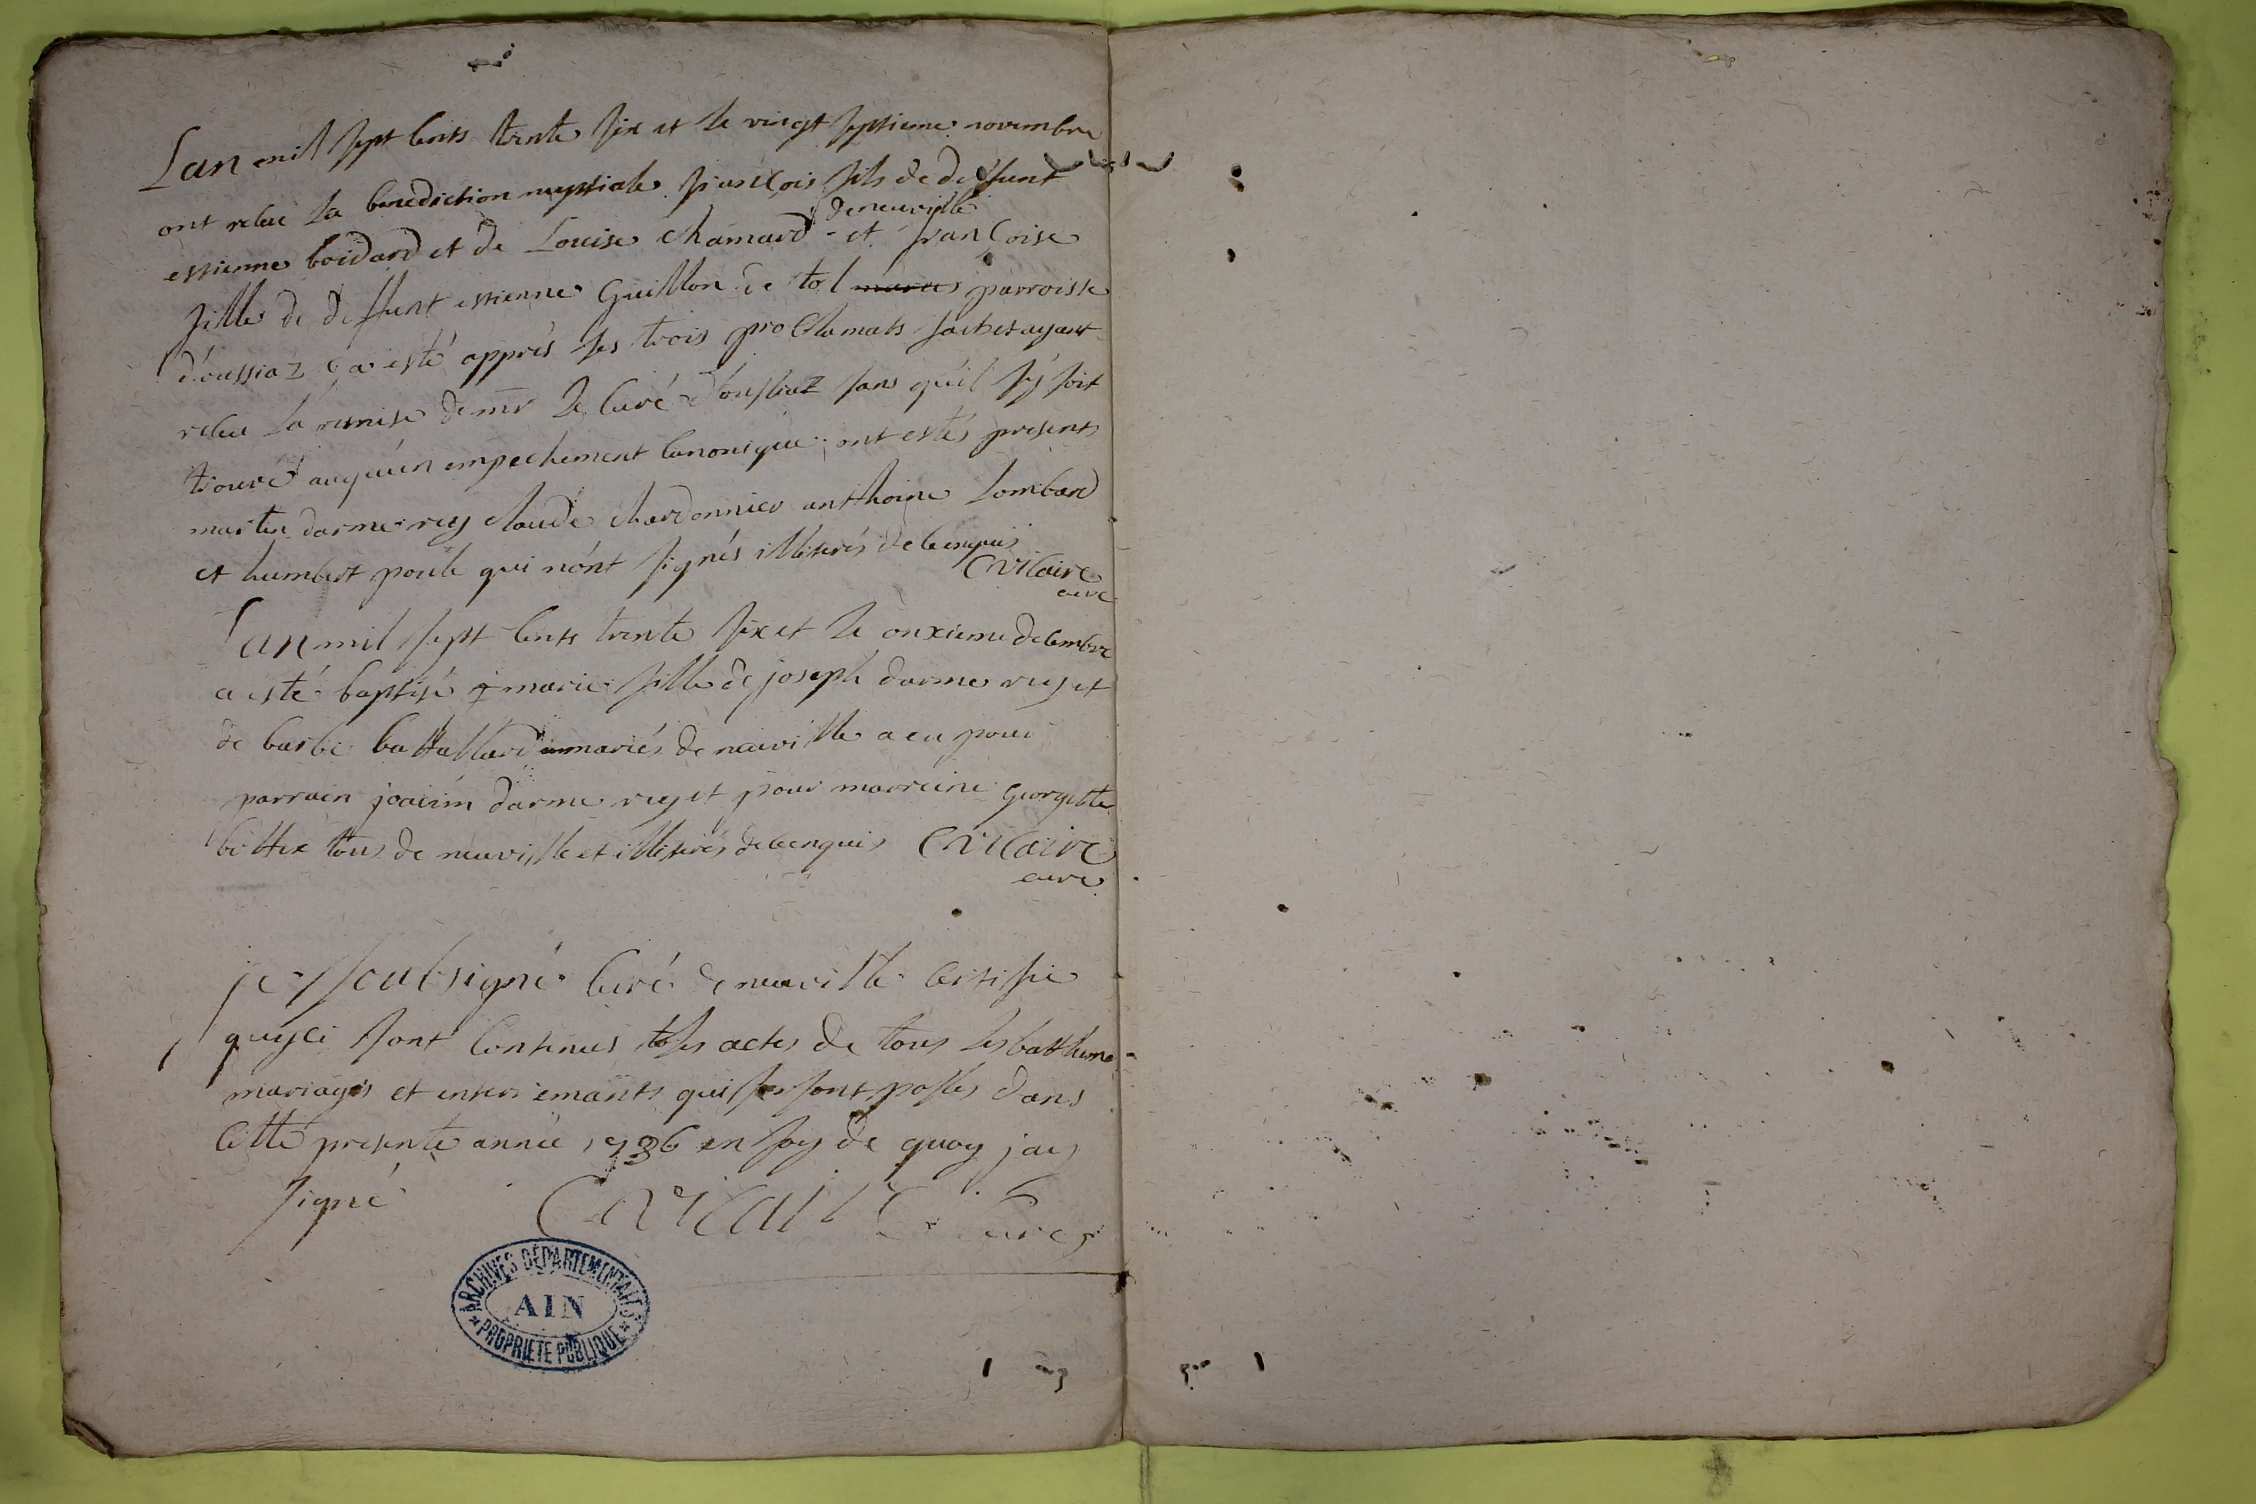 Lan mil sept cents trente six et le vingt septieme novembre
ont reçue la benediction nuptiale françois fils de deffunt
de neuville
estienne boidard et de Louise chamard et françoise
fille de deffunt estienne Guillon de tol parroisse
d'oussiaz ç'a esté apprès les trois proclamats faites ayant
reçue la remise de mr le curé d'oussiaz sans qu'il s'y soit
trouvé auquun empechement canonique ont estés presents
martin darmerey claude chardonnier anthoine Lombard
et humbert poule qui n'ont signés illiterés de ce enquis
Cvicaire
curé
Lan mil sept cents trente six et le onxieme decembre
a esté baptisé marie fille de joseph darmerey et
de barbe battallard mariés de neuville a eu pour
parrain joacim darmerey et pour marreine georgette
bettex tous de neuville et illiterés de ce enquis Cvicaire
curé
je soubsigné curé de neuville certifie
qu'yci sont contenus les actes de tous les battheme
mariages et enterremants qui se sont passés dans
cette presente année 1736 en foy de quoy jay
signé Cvicaire curé
ARCHIVES DÉPARTEMENTALES
AIN
PROPRIÉTÉ PUBLIQUE